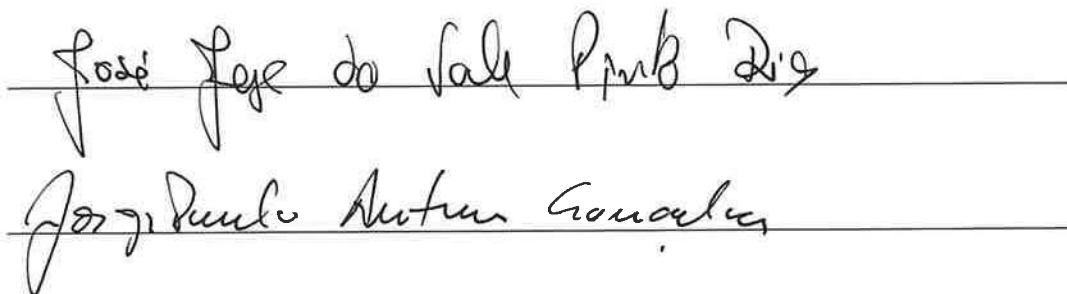 José Jorge do Vale Pinto Dias
Jorge Paulo Antunes Gonçalves